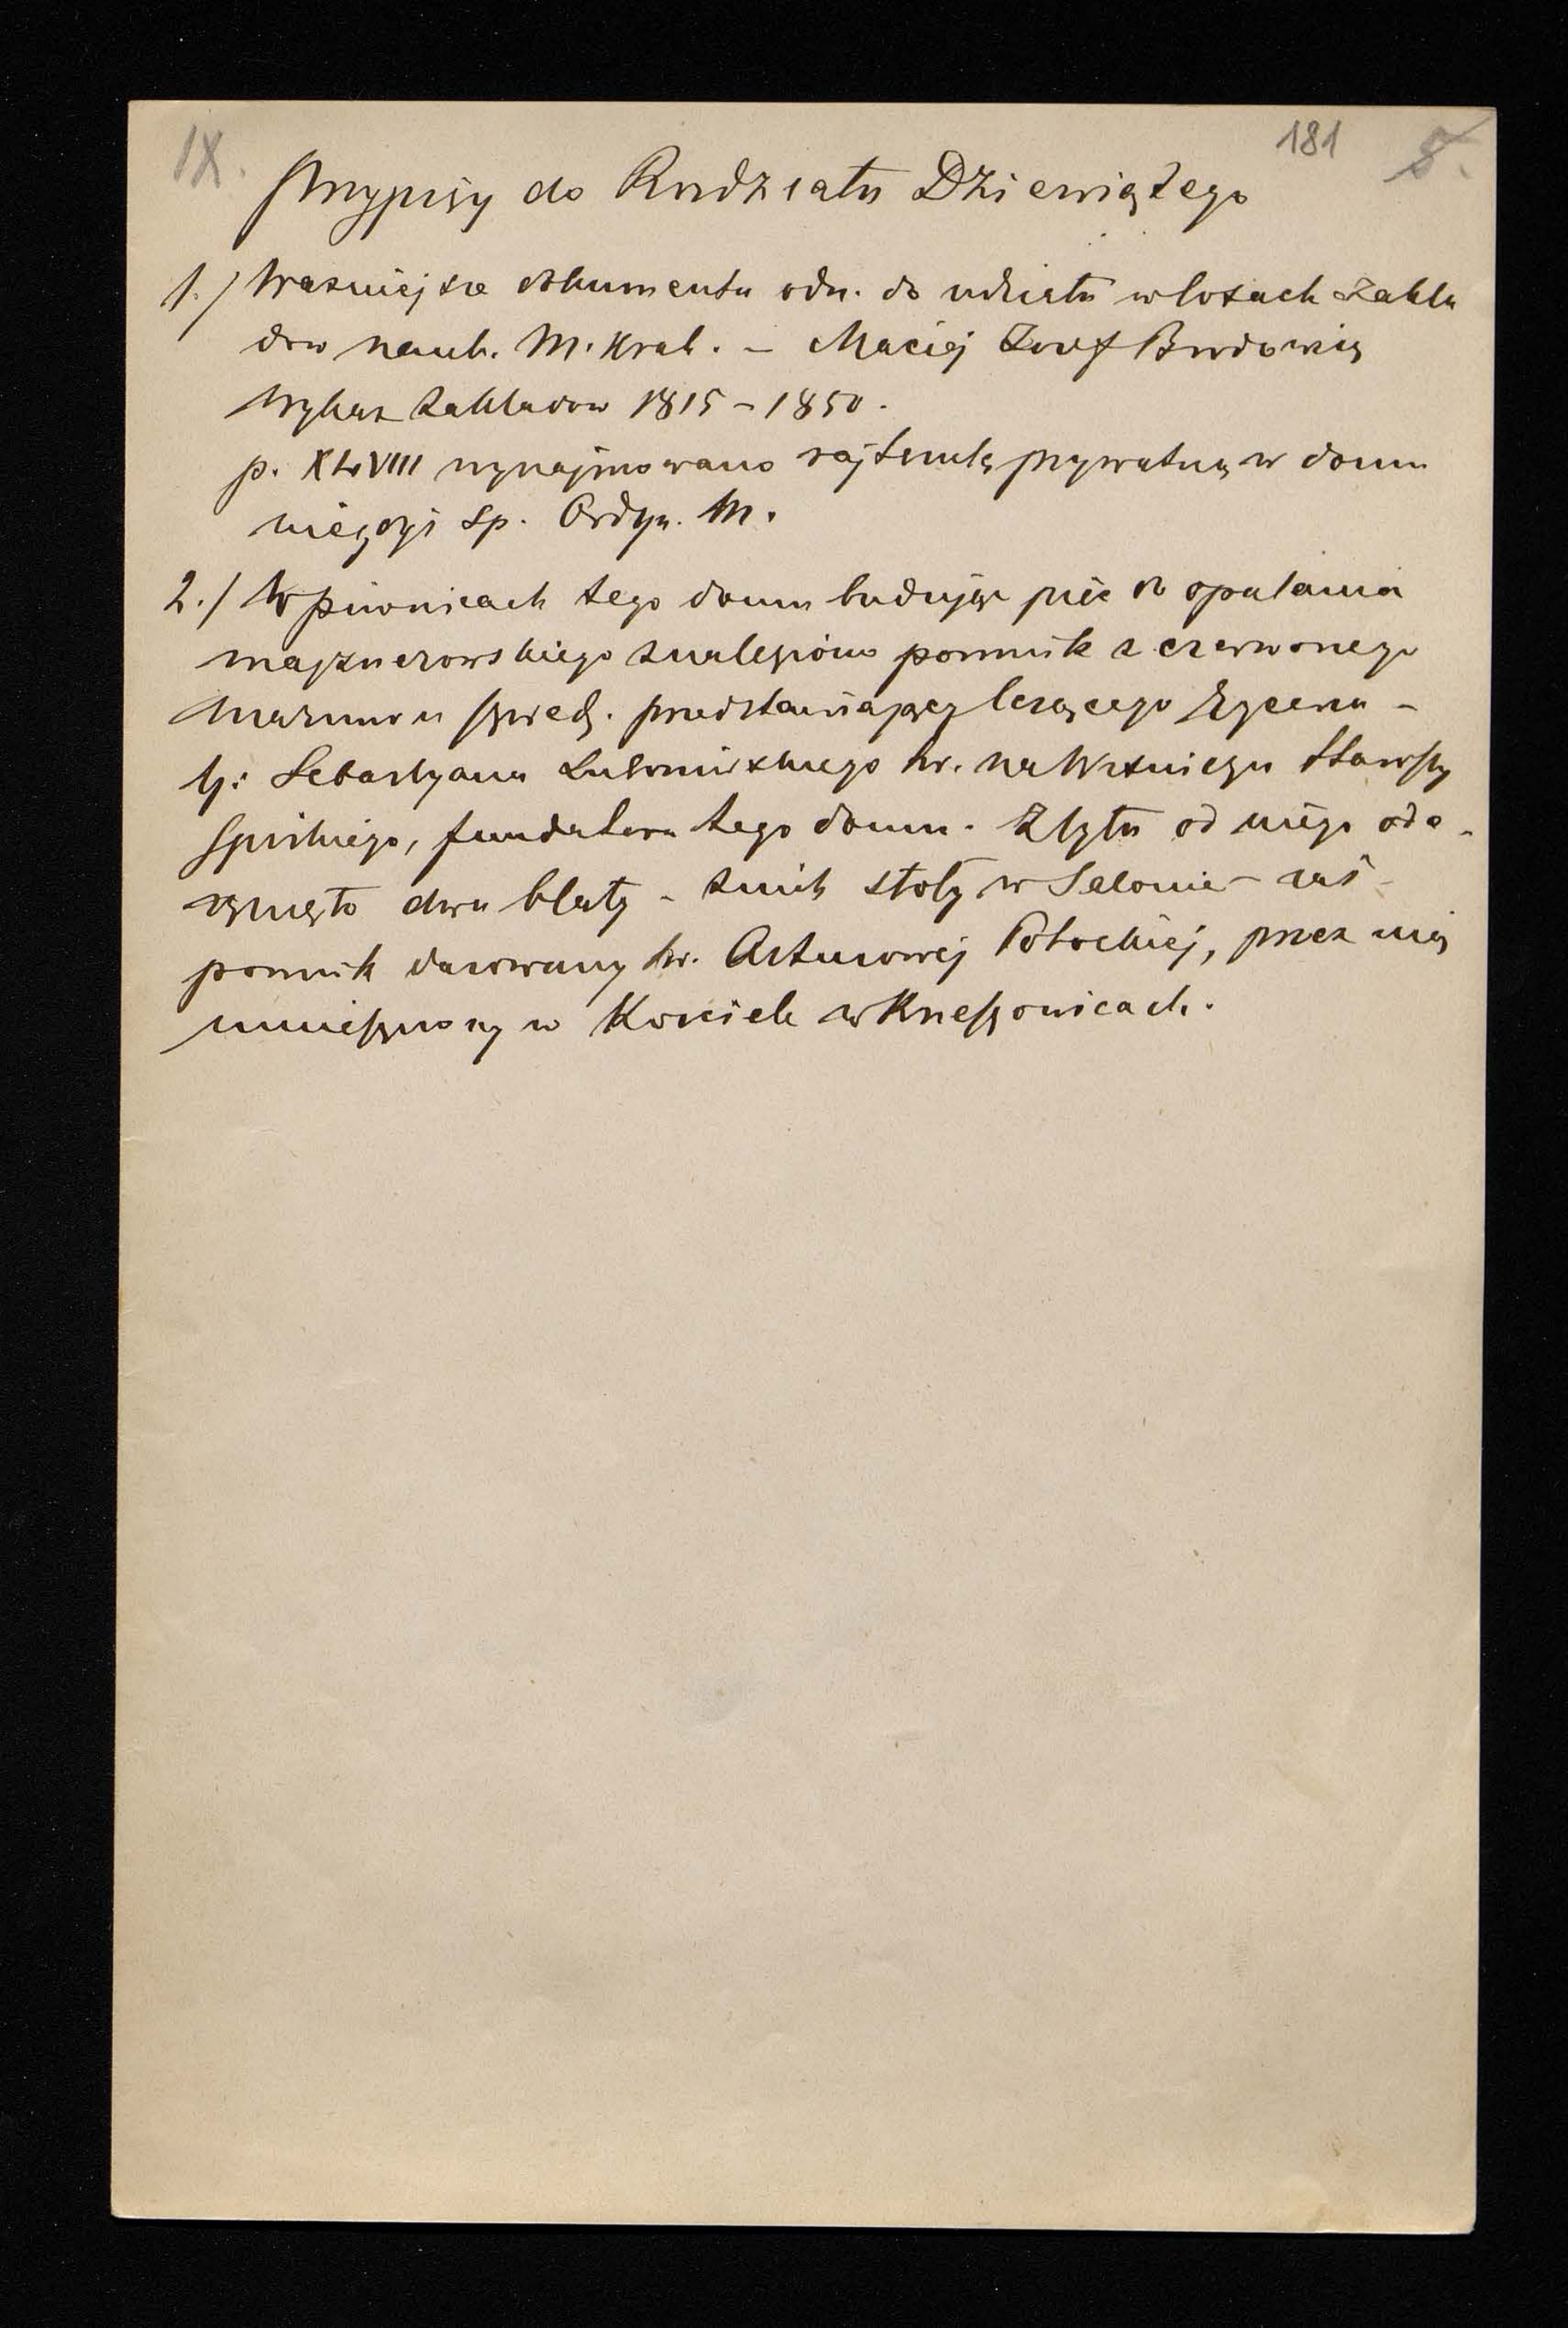 IX. 181 8.
Przypisy do Rozdziału Dziewiątego
1./ Ważniejsze dokumenta odn. do udziału w losach Zakła
dów nauk. M. Krak. – Maciej Józef Brodowicz
Wykaz Zakładów 1815 – 1850.
p. XLVIII wynajmowano rajtszulę prywatną w domu
niegdyś Sp. Ordyn. M.
2./ W piwnicach tego domu budując piec do opalania
majznerowskiego znaleziono pomnik z czerwonego
marmuru szwedz. przedstawiający leżącego Rycerza –
tj: Sebastyana Lubomirskiego hr. na Wiśniczu Starosty
Spiskiego, fundatora tego domu. Z tyłu od niego ode-
rznięto dwa blaty – z nich stoły w Salonie – zaś
pomnik darowany hr. Arturowej Potockiej, przez nią
umieszczony w Kościele w Krzeszowicach.